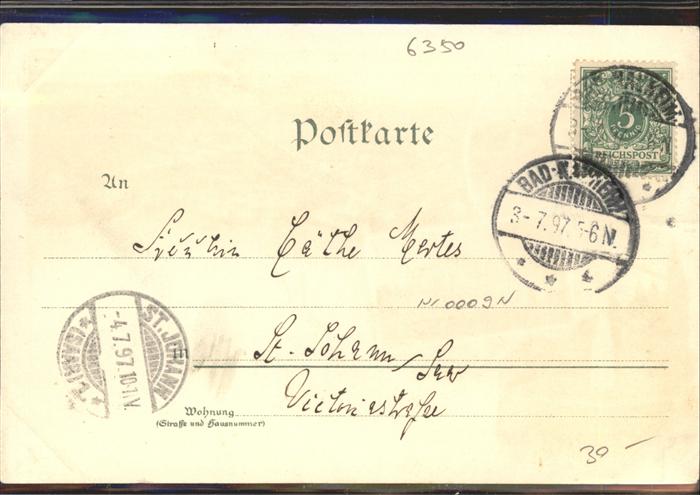 6350
5
PFENNIG
REICHSPOST
Postkarte
BAD-NAUHEIM
3-7.97.5-6N.
An
Fräulein Käthe Mertes
Nr0009N
ST. JOHANN
*(SAAR)*
-4.7.97.10-1.V.
in St. Johann/Saar
Victoriastraße
Wohnung
(Straße und Hausnummer)
30-